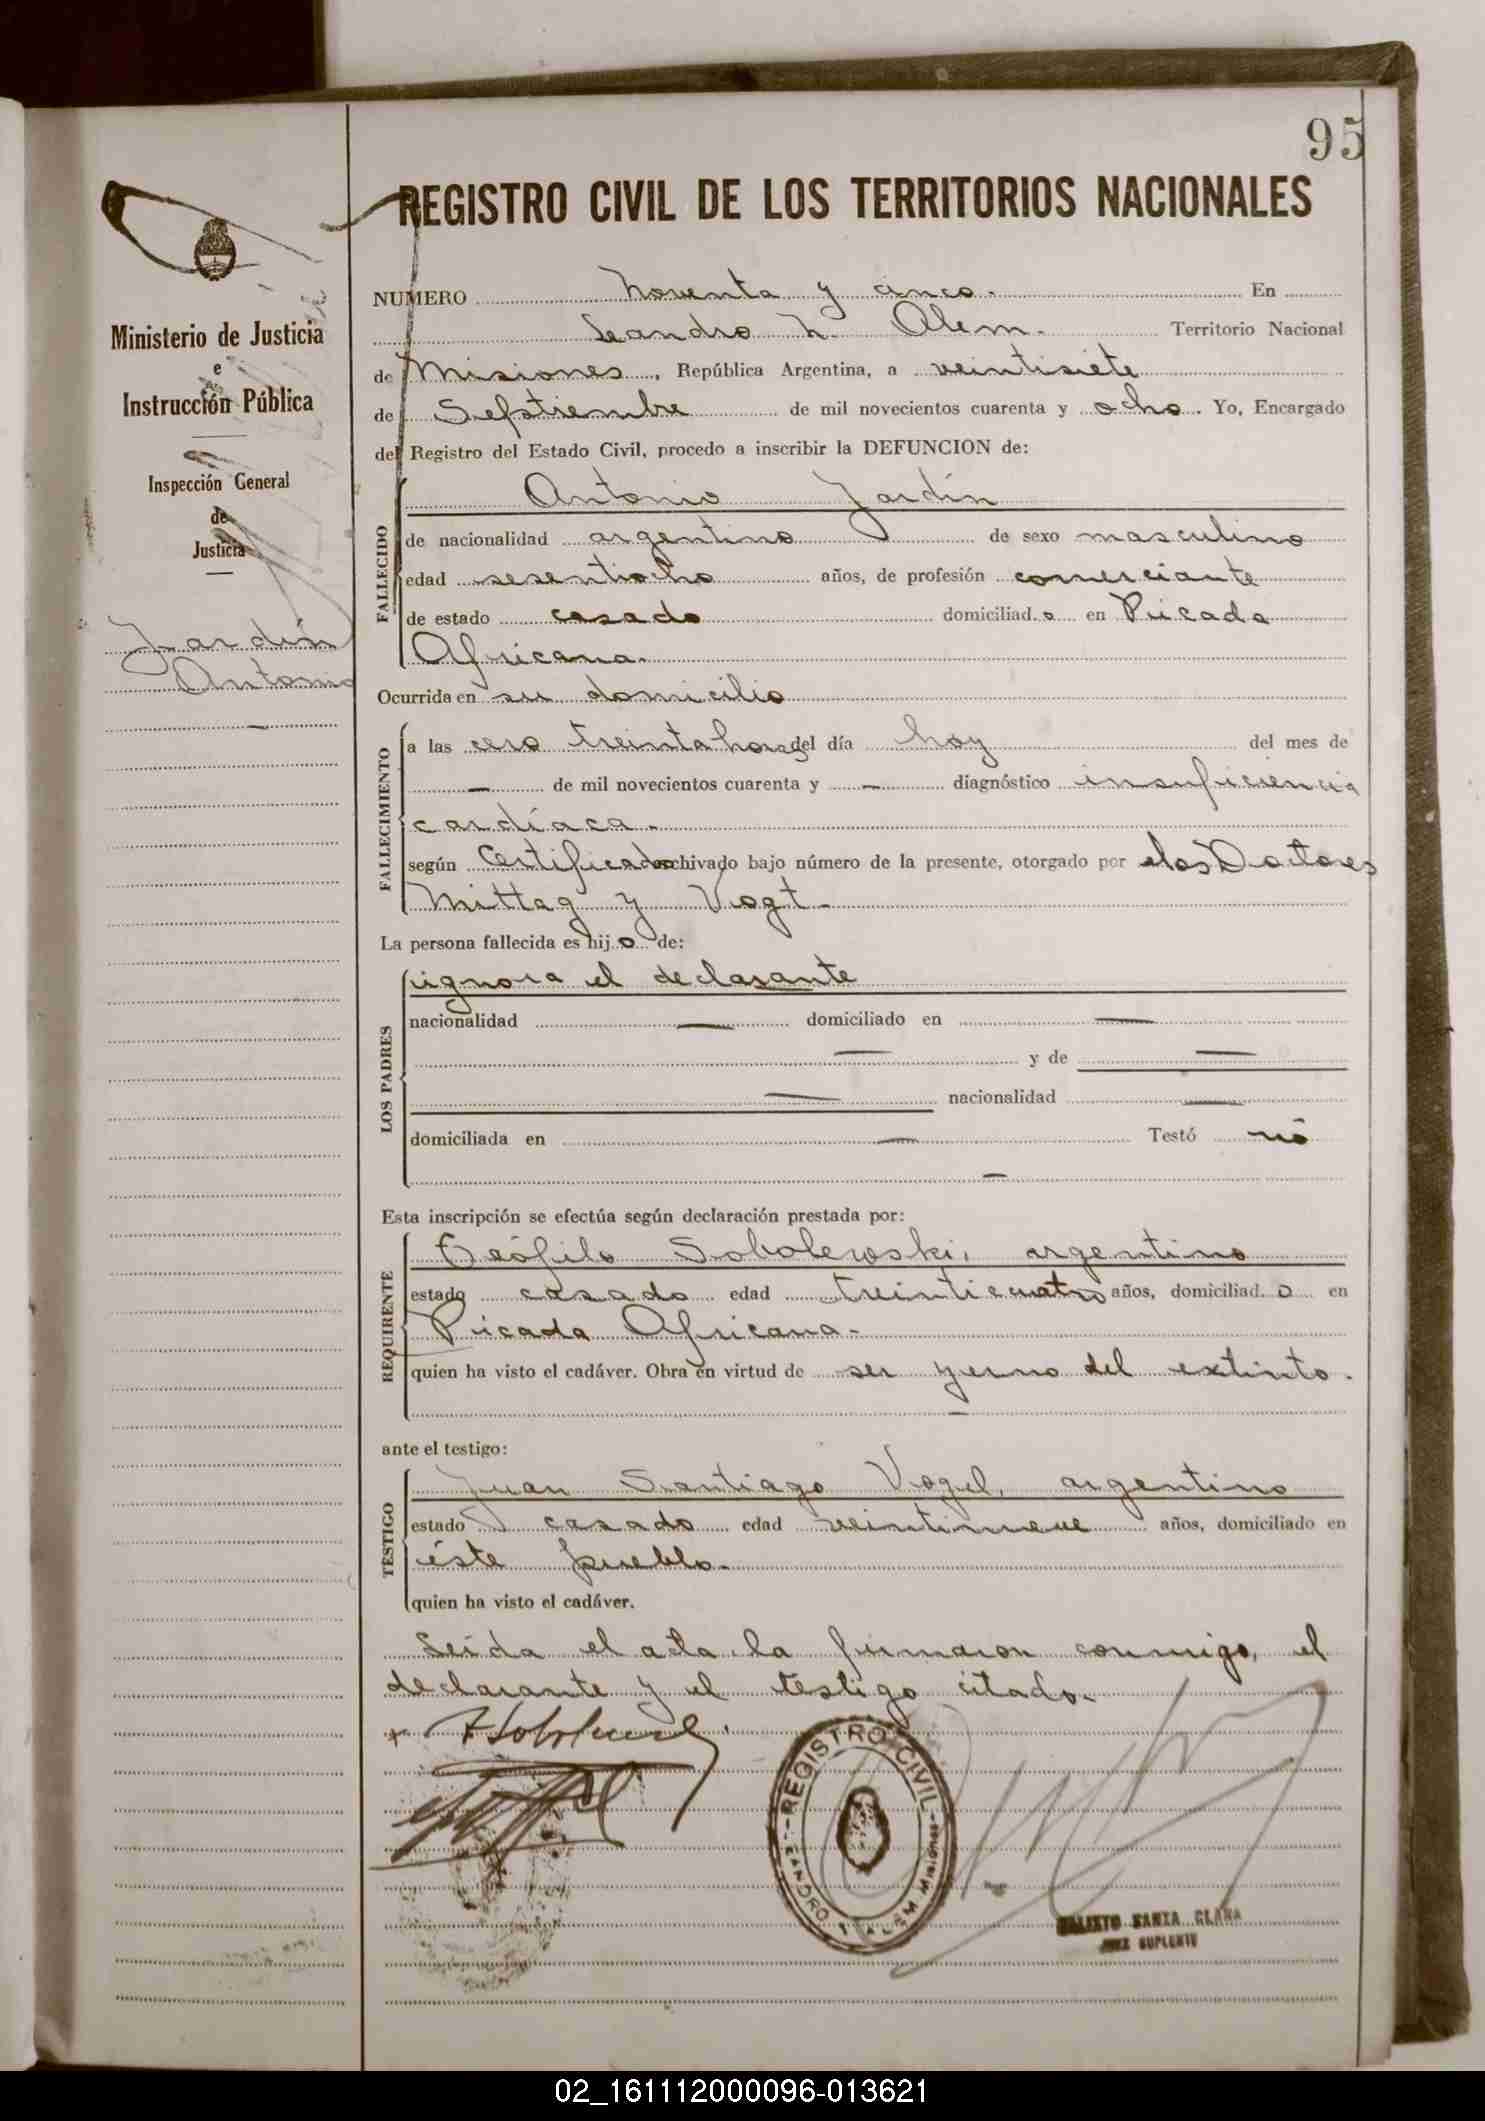 95
REGISTRO CIVIL DE LOS TERRITORIOS NACIONALES
Ministerio de Justicia
e
Instrucción Pública
Inspección General
de
Justicia
Jardín
Antonio
NUMERO noventa y cinco. En
Leandro N. Alem. Territorio Nacional
de Misiones, República Argentina, a veintisiete
de Septiembre de mil novecientos cuarenta y ocho. Yo, Encargado
del Registro del Estado Civil, procedo a inscribir la DEFUNCION de:
FALLECIDO
Antonio Jardín
de nacionalidad argentino de sexo masculino
edad sesentiocho años, de profesión comerciante
de estado casado domiciliad o en Picada
Africana.
Ocurrida en su domicilio
FALLECIMIENTO
a las cero treinta horas del día hoy del mes de
— de mil novecientos cuarenta y — diagnóstico insuficiencia
cardíaca.
según Certificado archivado bajo número de la presente, otorgado por los Doctores
Mittag y Vogt.
La persona fallecida es hij o de:
LOS PADRES
ignora el declarante
nacionalidad — domiciliado en —
— y de —
— nacionalidad —
domiciliada en — Testó no
—
Esta inscripción se efectúa según declaración prestada por:
REQUIRENTE
Teófilo Sobolewski, argentino
estado casado edad treinticuatro años, domiciliad o en
Picada Africana.
quien ha visto el cadáver. Obra en virtud de ser yerno del extinto.
—
ante el testigo:
TESTIGO
Juan Santiago Vogel, argentino
estado casado edad veintinueve años, domiciliado en
éste pueblo.
quien ha visto el cadáver.
Leída el acta la firmaron conmigo, el
declarante y el testigo citado.
REGISTRO CIVIL
LEANDRO N. ALEM Misiones
CALIXTO SANTA CLARA
JUEZ SUPLENTE
02_161112000096-013621